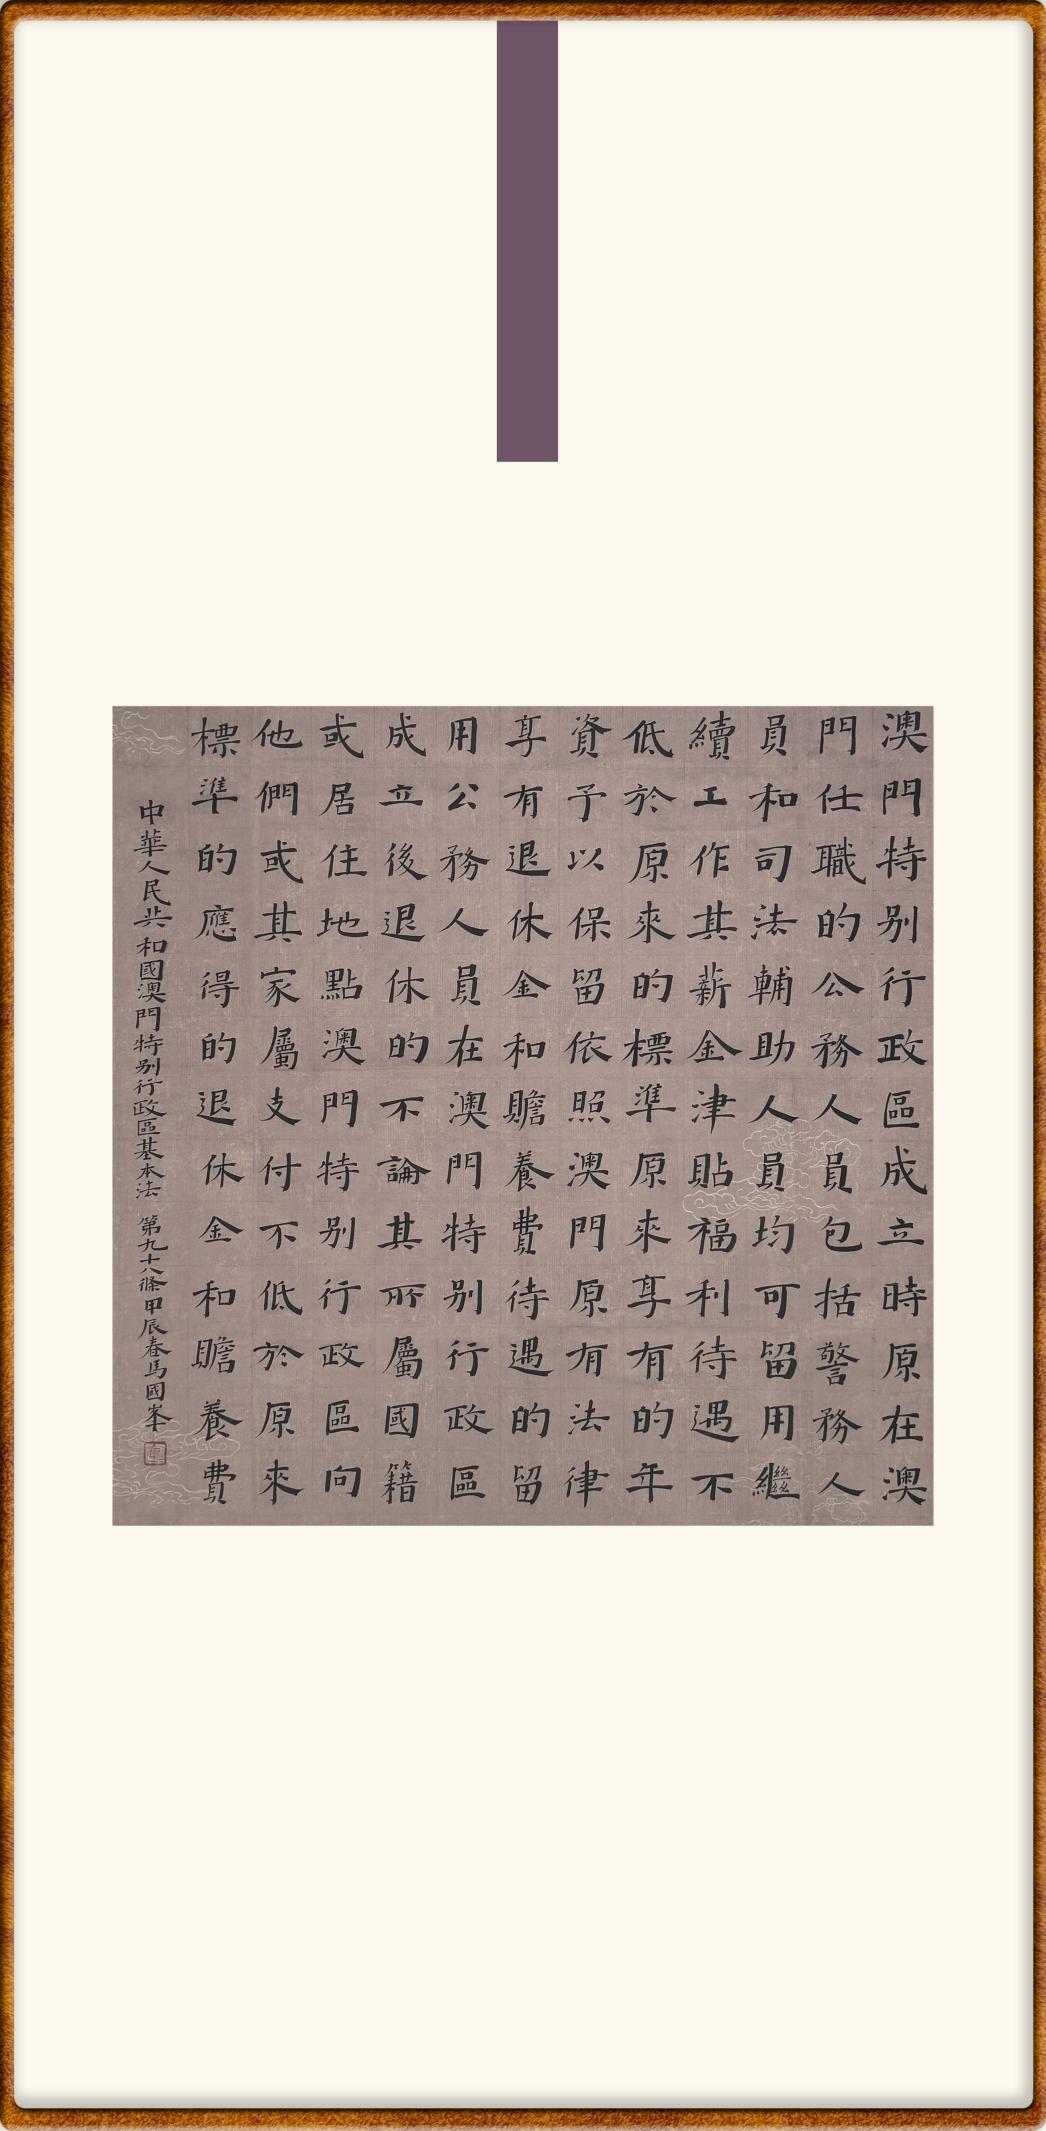 澳門特别行政區成立時原在澳
門任職的公務人員包括警務人
員和司法輔助人員均可留用繼
續工作其薪金津貼福利待遇不
低於原來的標準原來享有的年
資予以保留依照澳門原有法律
享有退休金和贍養費待遇的留
用公務人員在澳門特别行政區
成立後退休的不論其所屬國籍
或居住地點澳門特别行政區向
他們或其家屬支付不低於原來
標準的應得的退休金和贍養費
中華人民共和國澳門特别行政區基本法 第九十八條甲辰春馬國峯